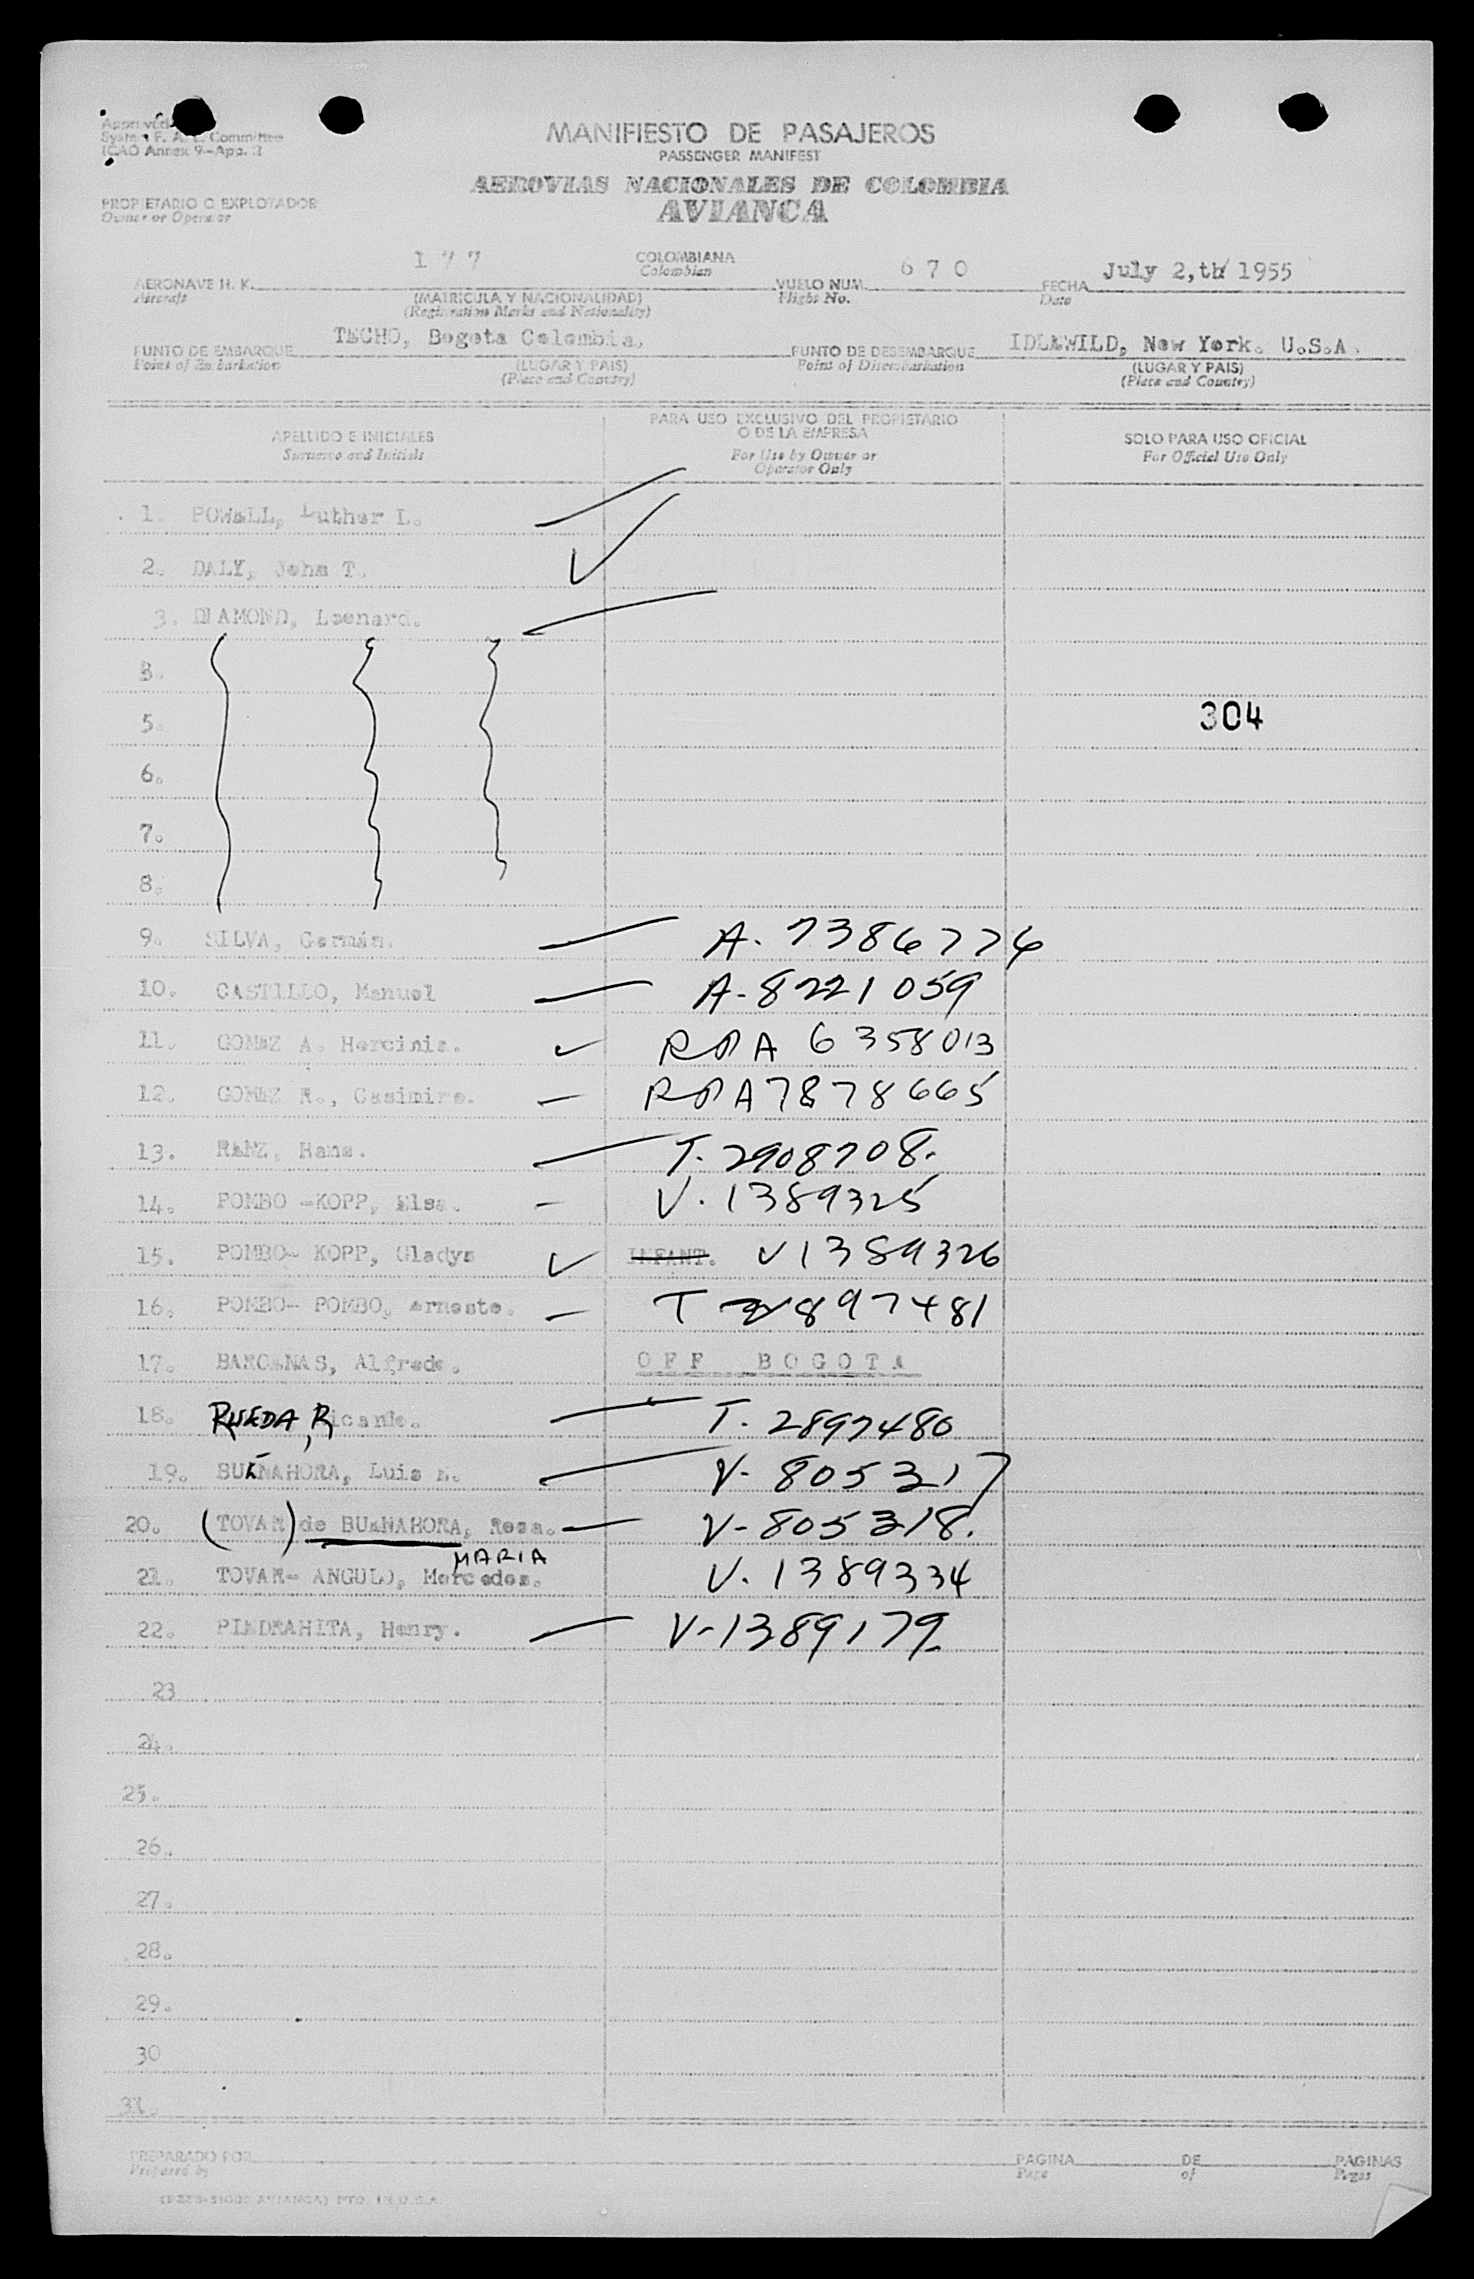 Approved
System F. A. L. Committee
ICAO Annex 9-App. 3
MANIFIESTO DE PASAJEROS
PASSENGER MANIFEST
AEROVIAS NACIONALES DE COLOMBIA
AVIANCA
PROPIETARIO O EXPLOTADOR
Owner or Operator
AERONAVE H. K. 177 COLOMBIANA VUELO NUM. 670 FECHA July 2,th 1955
Aircraft Colombian Flight No. Date
(MATRICULA Y NACIONALIDAD)
(Registration Marks and Nationality)
PUNTO DE EMBARQUE TECHO, Bogota Colombia. PUNTO DE DESEMBARQUE IDLEWILD, New York. U.S.A.
Point of Embarkation (LUGAR Y PAIS) Point of Disembarkation (LUGAR Y PAIS)
(Place and Country) (Place and Country)
APELLIDO E INICIALES PARA USO EXCLUSIVO DEL PROPIETARIO O DE LA EMPRESA SOLO PARA USO OFICIAL
Surname and Initials For Use by Owner or Operator Only For Official Use Only
1. POWELL, Luther L.
2. DALY, John T.
3. DIAMOND, Leenard.
5. 304
6.
7.
8.
9. SILVA, Germán. A. 7386774
10. CASTILLO, Manuel A-8221059
11. GOMEZ A. Hercinia. RPA 6358013
12. GOMEZ R., Casimire. RPA7878665
13. RENZ, Hans. T. 2908708.
14. POMBO -KOPP, Elsa. V. 1389325
15. POMBO- KOPP, Gladys INFANT. V1389326
16. POMBO- POMBO, Ernesto. T 2897481
17. BARCENAS, Alfredo. OFF BOGOTA
18. RUEDA, Ricardo. T. 2897480
19. BUENAHORA, Luis E. V- 805317
20. (TOVAR) de BUENAHORA, Rosa. V-805318.
MARIA
21. TOVAR- ANGULO, Mercedes. V. 1389334
22. PIEDRAHITA, Henry. V-1389179
23
24.
25.
26.
27.
28.
29.
30
31.
PREPARADO POR PAGINA DE PAGINAS
Prepared by Page of Pages